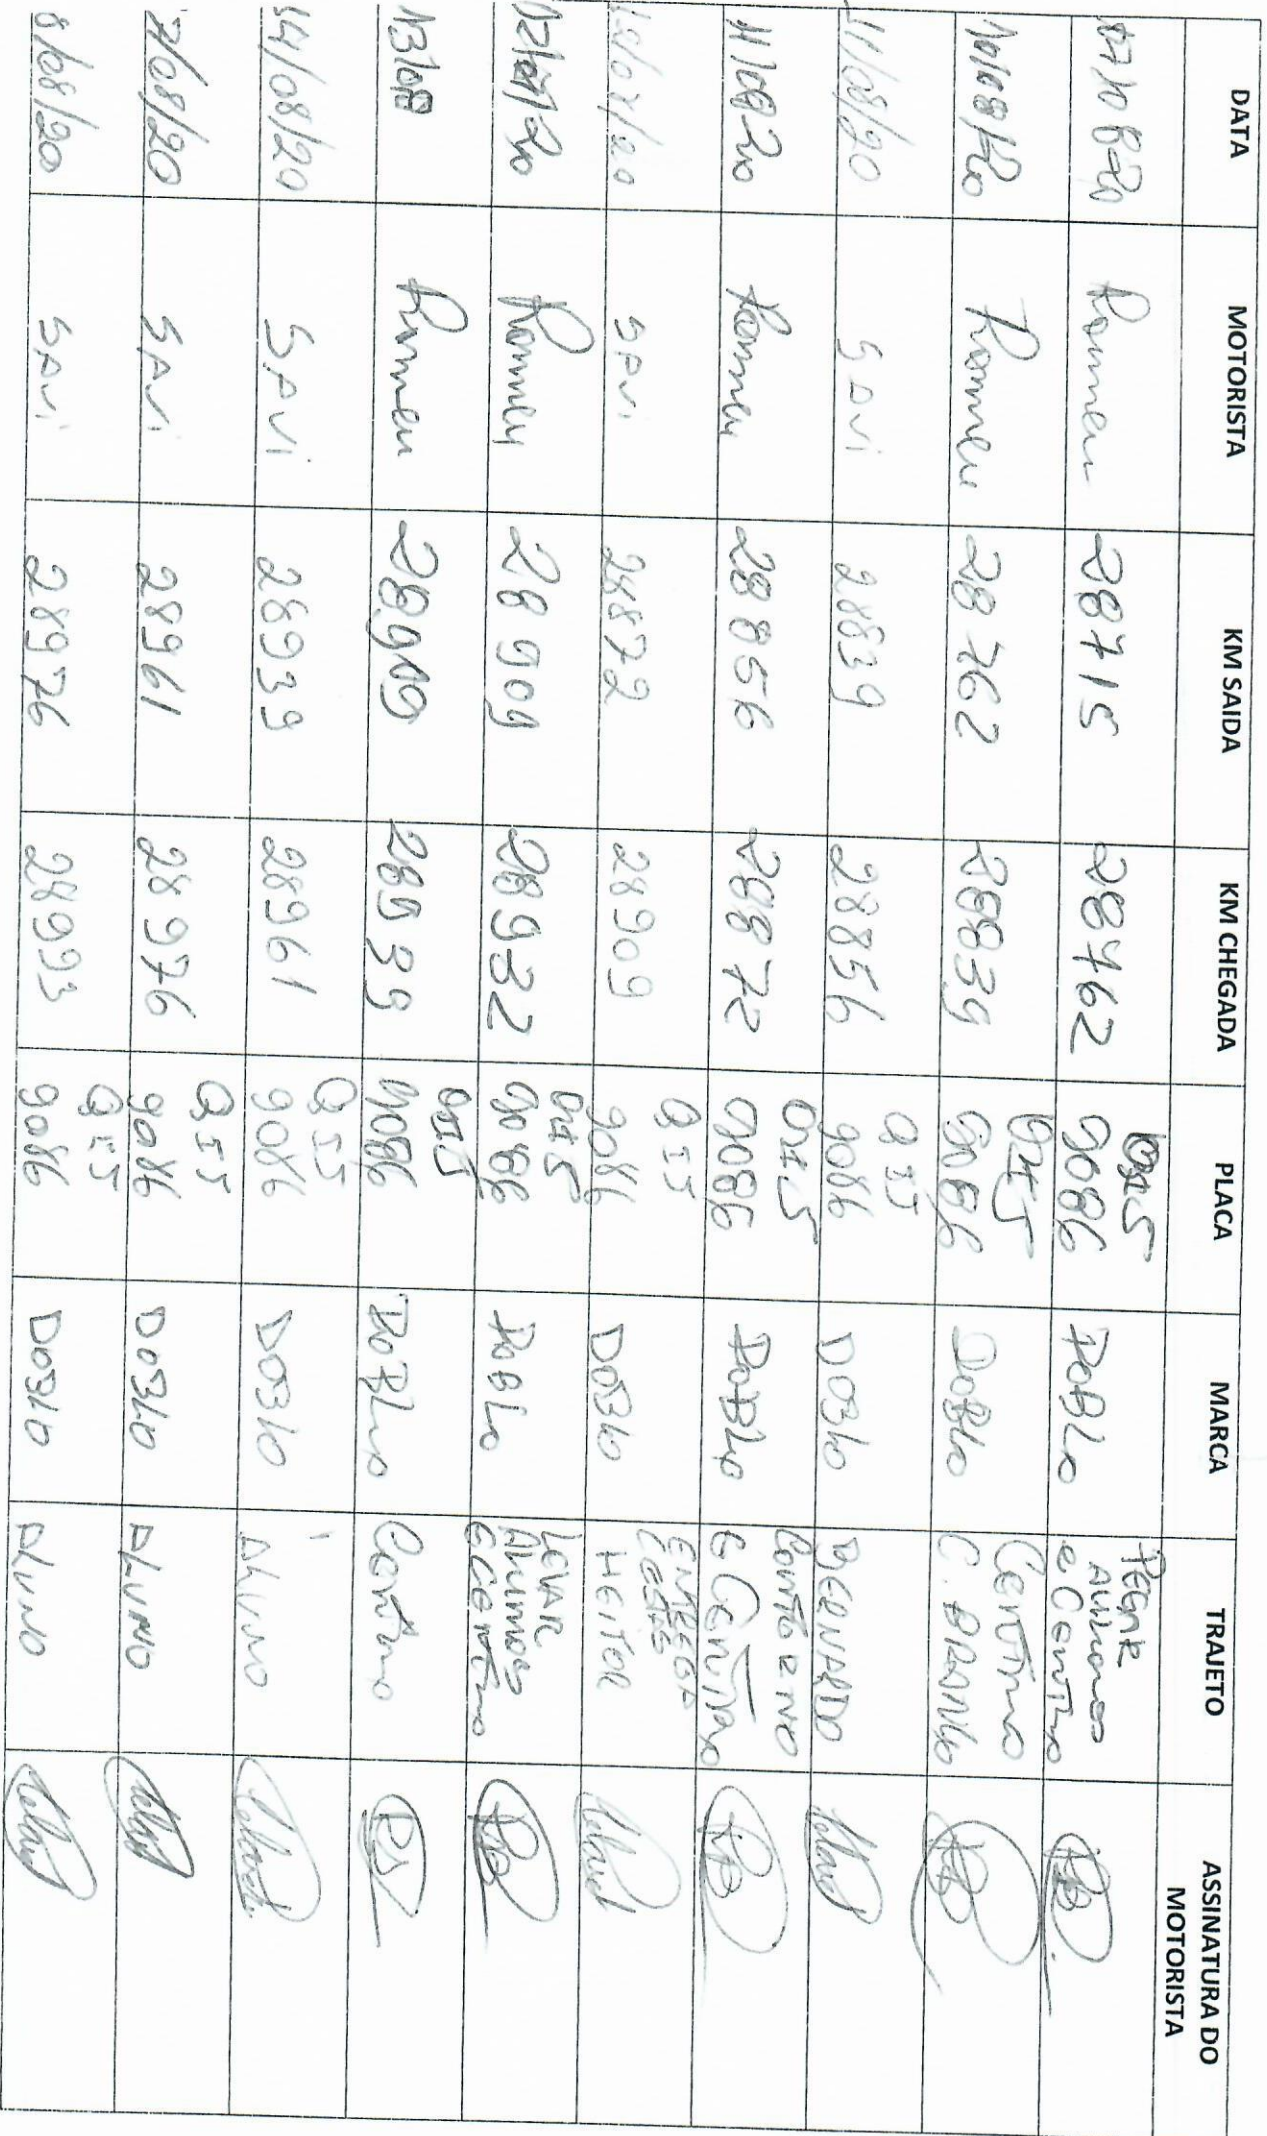 DATA MOTORISTA KM SAIDA KM CHEGADA PLACA MARCA TRAJETO ASSINATURA DO MOTORISTA
07/08/20 Rommeu 28715 28762 QIJ 9086 DOBLO PEGAR ALUNOS e Centro
10/08/20 Rommeu 28762 28839 QIJ 9086 DOBLO Centro C. BRANCO
11/08/20 SAVI 28839 28856 QIJ 9086 DOBLO BERNARDO
11/08/20 Rommeu 28856 28872 QIJ 9086 DOBLO CONTORNO e CENTRO
SAVI 28872 28909 QIJ 9086 DOBLO ENTREGA CESTA HEITOR
Rommeu 28909 28932 QIJ 9086 DOBLO LEVAR ALUNOS E CENTRO
13/08 Rommeu 28939 QIJ 9086 DOBLO Centro
14/08/20 SAVI 28939 28961 QIJ 9086 DOBLO ALUNO
7/08/20 SAVI 28961 28976 QIJ 9086 DOBLO ALUNO
8/08/20 SAVI 28976 28993 QIJ 9086 DOBLO ALUNO